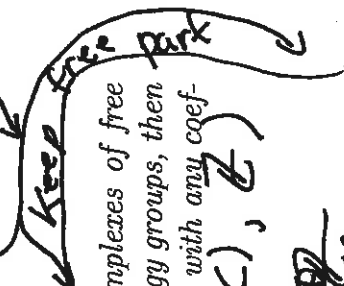 Keep free park
mplexes of free
gy groups, then
with any coef-
), Z)